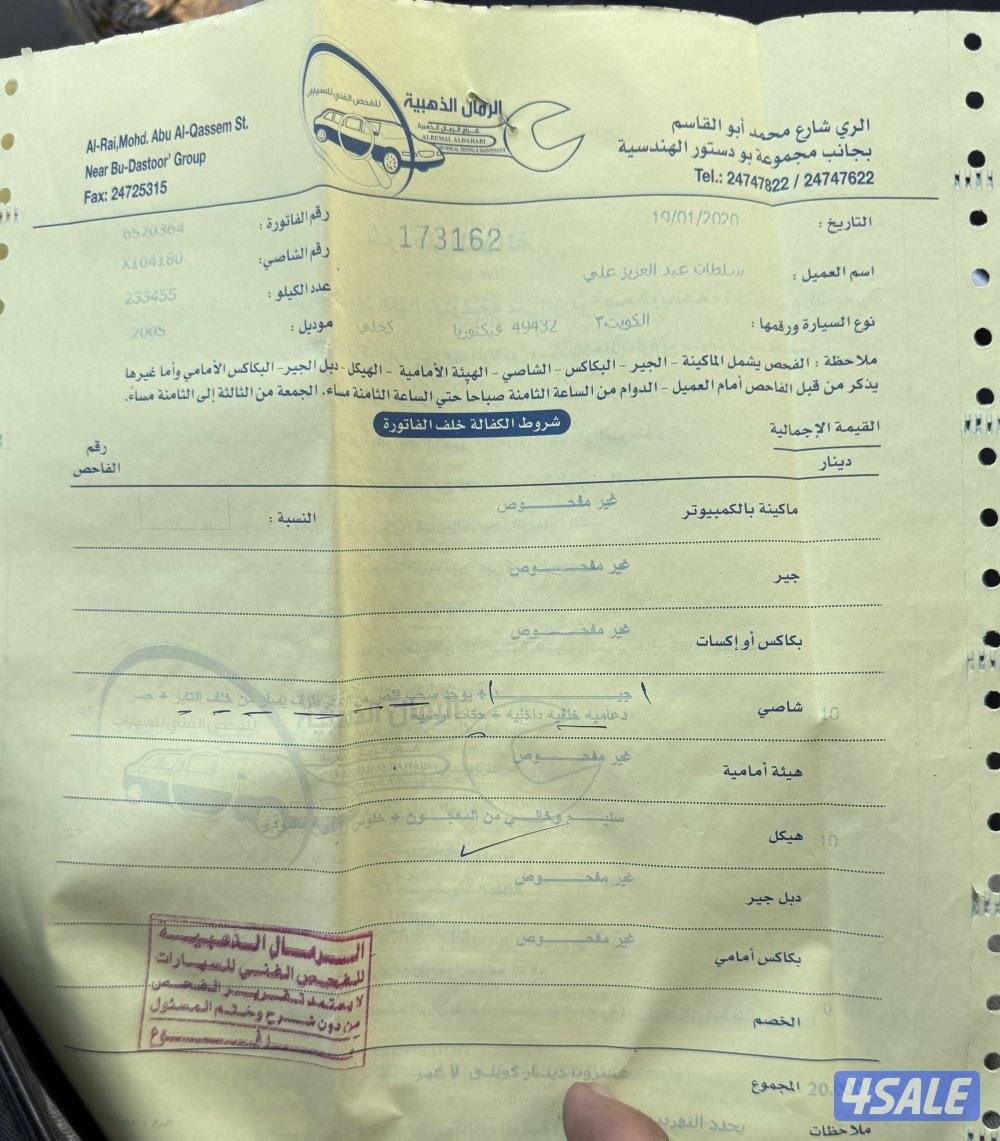 للفحص الفني للسيارات
الرمال الذهبية
كراج الرمال الذهبية
ALREMAL ALDAHABI
TECHNICAL TESTING & MAINTENANCE
Al-Rai,Mohd. Abu Al-Qassem St.
Near Bu-Dastoor' Group
Fax: 24725315
الري شارع محمد أبو القاسم
بجانب مجموعة بو دستور الهندسية
Tel.: 24747822 / 24747622
التاريخ : 19/01/2020
173162
رقم الفاتورة : 6520364
اسم العميل : سلطان عبد العزيز علي
رقم الشاصي: X104180
عدد الكيلو : 233455
نوع السيارة ورقمها : الكويت٣ 49432 فيكتوريا كحلي
موديل : 2005
ملاحظة : الفحص يشمل الماكينة - الجير - البكاكس - الشاصي - الهيئة الأمامية - الهيكل - دبل الجير- البكاكس الأمامي وأما غيرها
يذكر من قبل الفاحص أمام العميل - الدوام من الساعة الثامنة صباحاً حتي الساعة الثامنة مساء. الجمعة من الثالثة إلى الثامنة مساءً.
القيمة الإجمالية
شروط الكفالة خلف الفاتورة
دينار
رقم
الفاحص
ماكينة بالكمبيوتر غير مفحوص النسبة :
جير غير مفحوص
بكاكس أو إكسات غير مفحوص
10 شاصي جيد + يوجد سحب قلص من طرف يسار من خلف الكاير +
دعاميه خلفيه داخليه + حكات ارضية
هيئة أمامية غير مفحوص
10 هيكل سليم وخالي من المعجون +
دبل جير غير مفحوص
بكاكس أمامي غير مفحوص
0 الخصم
الرمال الذهبية
للفحص الفني للسيارات
لا يعتمد تقرير الفحص
من دون شرح وختم المسئول
20. المجموع عشرون دينار كويتي لا غير
ملاحظات
4SALE